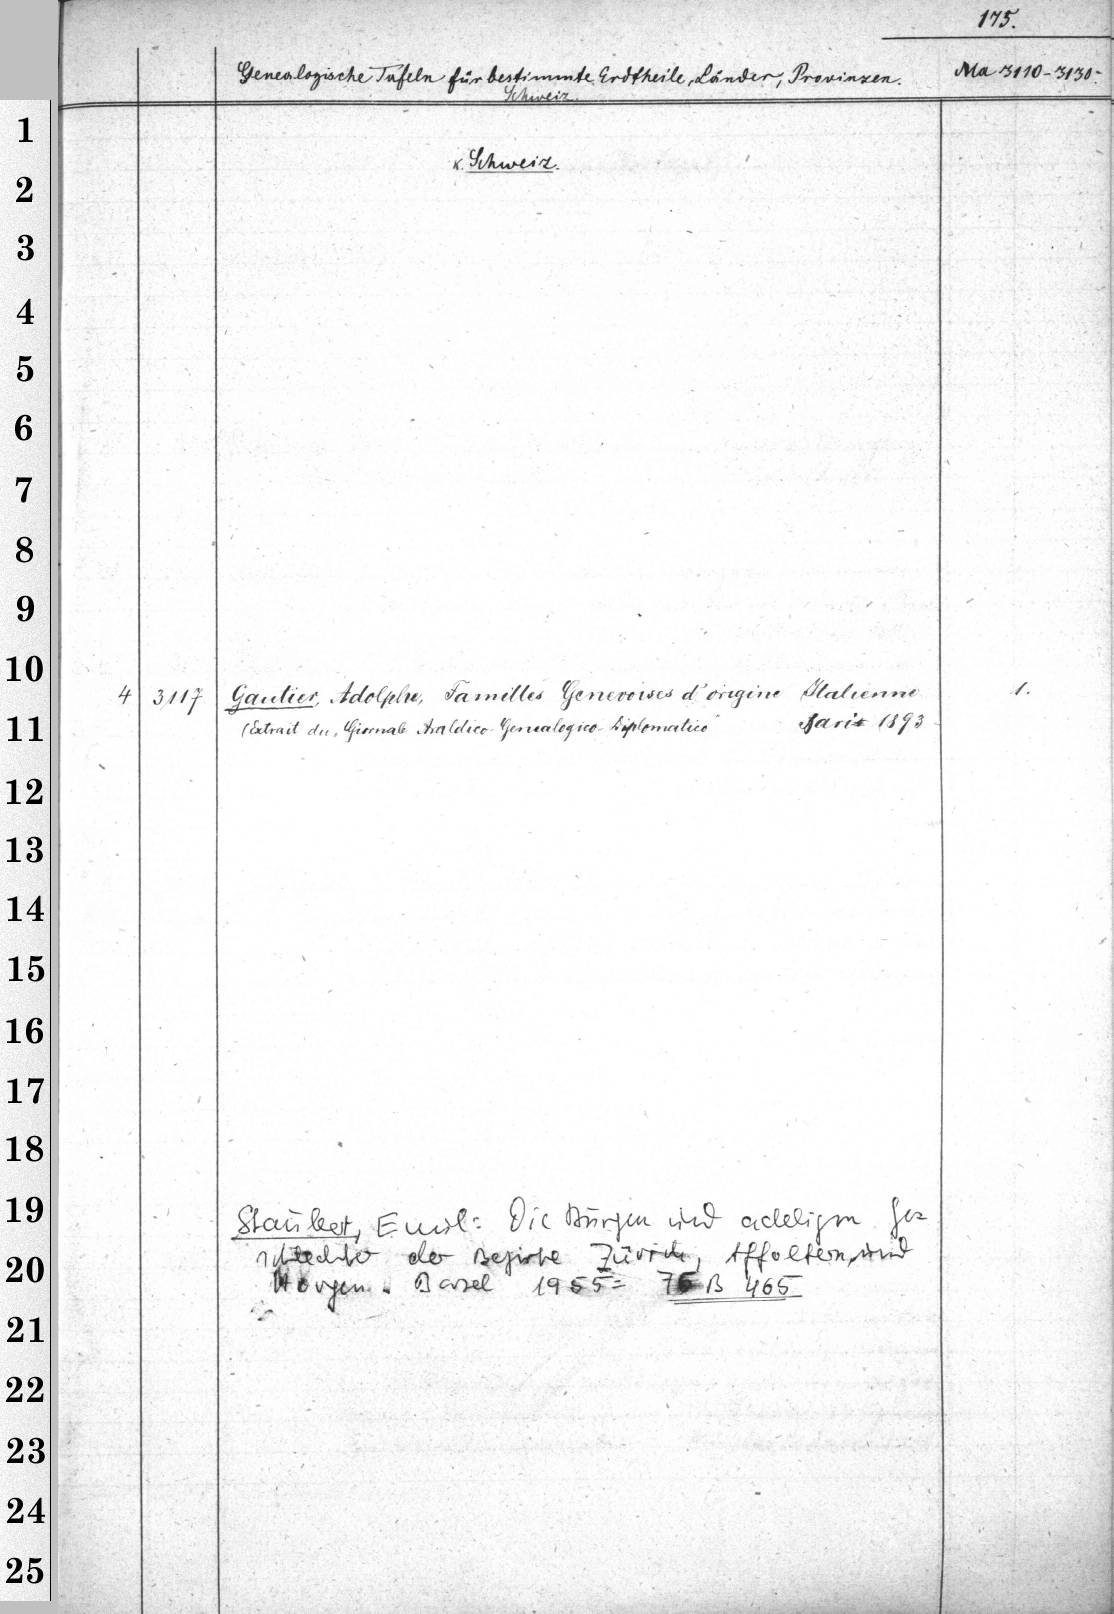 175.
Genealogische Tafeln für bestimmte Erdtheile, Länder, Provinzen. Ma 3110-3130.
Schweiz.
1
κ. Schweiz.
2
3
4
5
6
7
8
9
10
4 3117 Gautier, Adolphe, Familles Genevoises d'origine Italienne 1.
11 (Extrait du „Giornale Araldico-Genealogico-Diplomatico" Paris 1893
12
13
14
15
16
17
18
19 Stauber, Emil: Die Burgen und adeligen Ge=
20 schlechter der Bezirke Zürich, Affoltern, und
Horgen. Basel 1955= 76 B 465
21
22
23
24
25